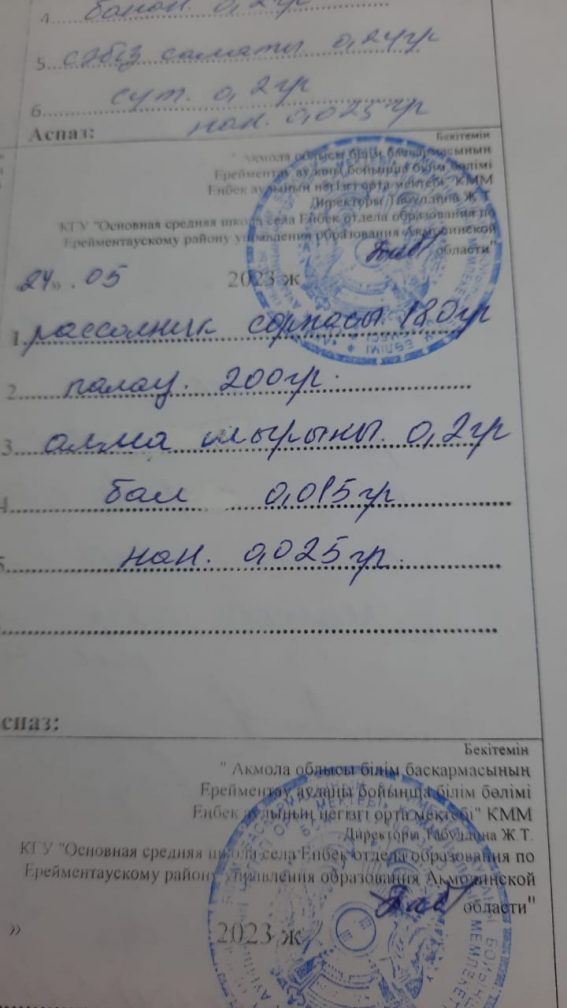 4. банан 0,2гр
5. сәбіз салаты 0,24гр
6. сүт. 0,2гр
нан. 0,025гр
Аспаз:
Бекітемін
" Ақмола облысы білім басқармасының
Ерейментау ауданы бойынша білім бөлімі
Еңбек ауылының негізгі орта мектебі" КММ
Директоры Табулдина Ж Т.
КГУ "Основная средняя школа села Енбек отдела образования по
Ерейментаускому району управления образования Акмолинской
области"
24» . 05 2023 ж
1. рассолник сорпасы 180гр
2. палау. 200гр.
3. алма шырыны. 0,2гр
4. бал 0,015гр
5. нан. 0,025гр.
спаз:
Бекітемін
" Акмола облысы білім баскармасының
Ерейментау ауданы бойынша білім бөлімі
Енбек ауылының негізгі орта мектебі" КММ
Директоры Табулдина Ж Т.
КГУ "Основная средняя школа села Енбек отдела образования по
Ерейментаускому району управления образования Акмолинской
области"
» 2023 ж